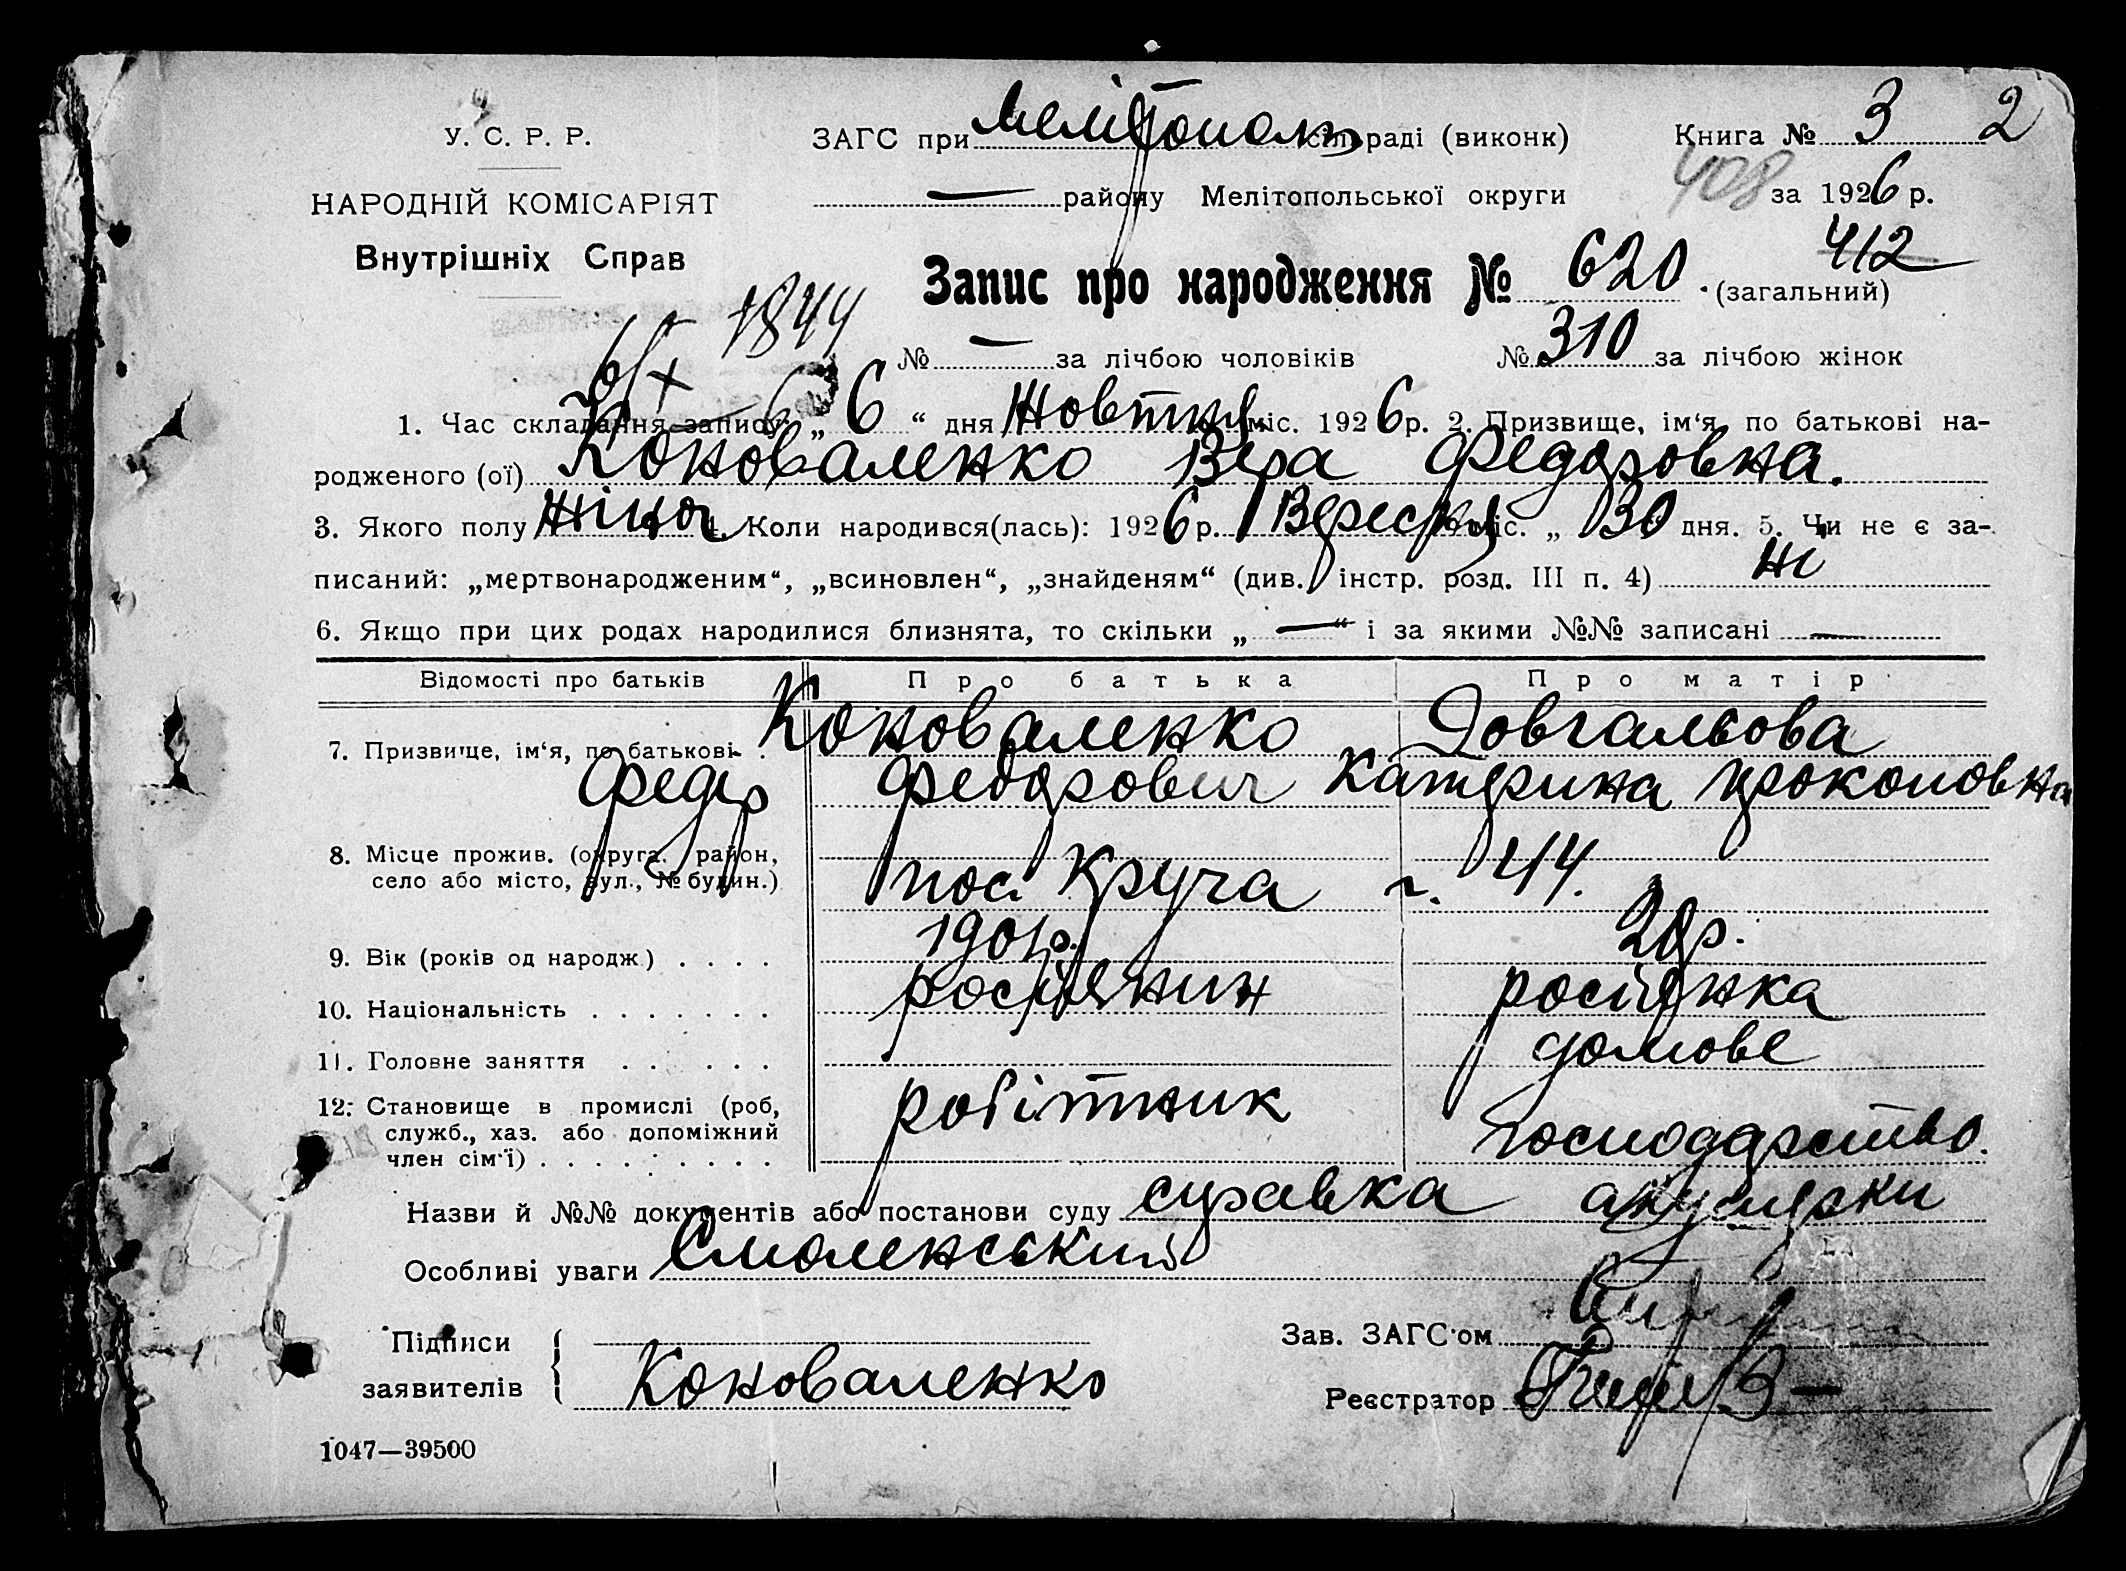 У. С. Р. Р.
НАРОДНІЙ КОМІСАРІЯТ
Внутрішніх Справ
ЗАГС при Мелітополь сільраді (виконк)
Книга № 3 2
— району Мелітопольської округи
408 за 1926 р.
412
Запис про народження № 620 (загальний)
1844
№ — за лічбою чоловіків № 310 за лічбою жінок
1. Час складання запису „ 6 “ дня Жовтня міс. 1926 р. 2. Призвище, ім‘я, по батькові на-
родженого (ої) Коноваленко Вера Федоровна.
3. Якого полу жіноч 4. Коли народився(лась): 1926 р. Вересня міс. „ 30 дня. 5. Чи не є за-
писаний: „мертвонародженим“, „всиновлен“, „знайденям“ (див. інстр. розд. III п. 4) ні
6. Якщо при цих родах народилися близнята, то скільки „ — “ і за якими №№ записані —
Відомості про батьків Про батька Про матір
7. Призвище, ім‘я, по батькові Коноваленко Довгальова
Федор Федорович Катерина Прокоповна
8. Місце прожив. (округа, район,
село або місто, вул., № будин.) пос Круча г. 44.
9. Вік (років од народж.) . . . . 1901р. 20р.
10. Національність . . . . . . . росіянин росіянка
11. Головне заняття . . . . . . домове
12. Становище в промислі (роб, служб., хаз. або допоміжний член сім‘ї) . . . . . . . . . робітник господарство.
Назви й №№ документів або постанови суду справка акушерки
Особливі уваги Смоленський
Підписи
заявителів Коноваленко
Зав. ЗАГС‘ом
Реєстратор
1047—39500